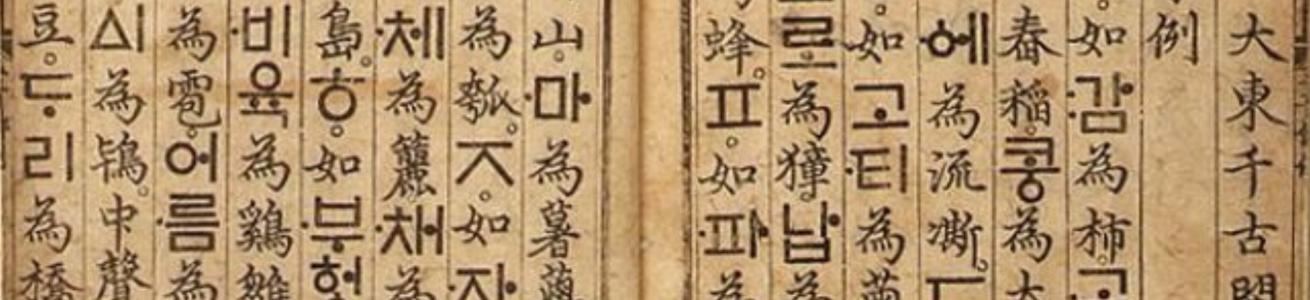 大東千古開
例
。如:감為柿。ᄀ
舂稻。콩為大
ᅌᅦ為流凘。ㄷ
。如고·티為繭
로為獐。납為
蜂。ㅍ。如·파為
山。·마為薯藇
為瓠。ㅈ。如·자
·체為籭。·채為
島。ㅎ。如·부헝
·비육為鷄雛
為雹。어·름為
ᅀᅵ為鴇。中聲
豆。ᄃᆞ리為橋